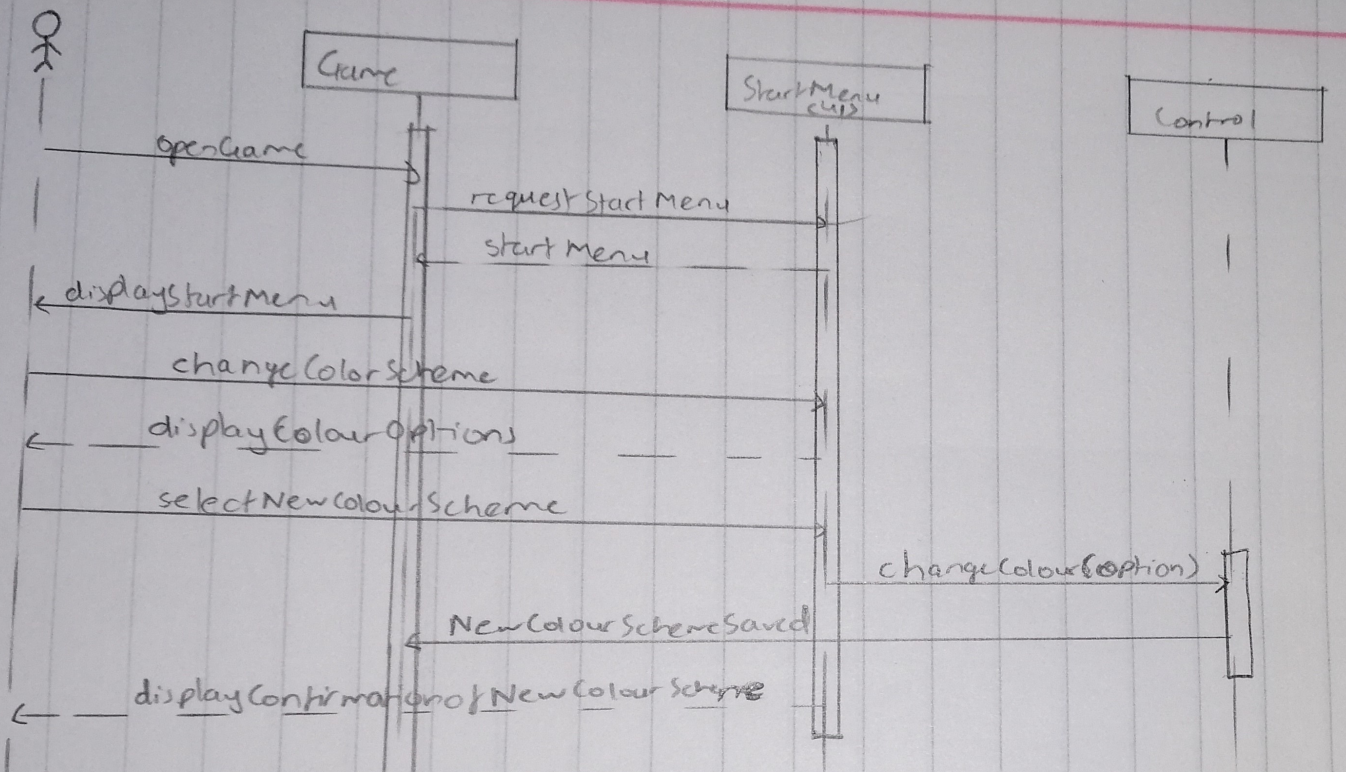 Game
StartMenu
Control
openGame
requestStartMenu
startMenu
displayStartMenu
changeColorScheme
displayColourOptions
selectNewColourScheme
changeColour(option)
NewColourSchemeSaved
displayConfirmationofNewColourScheme